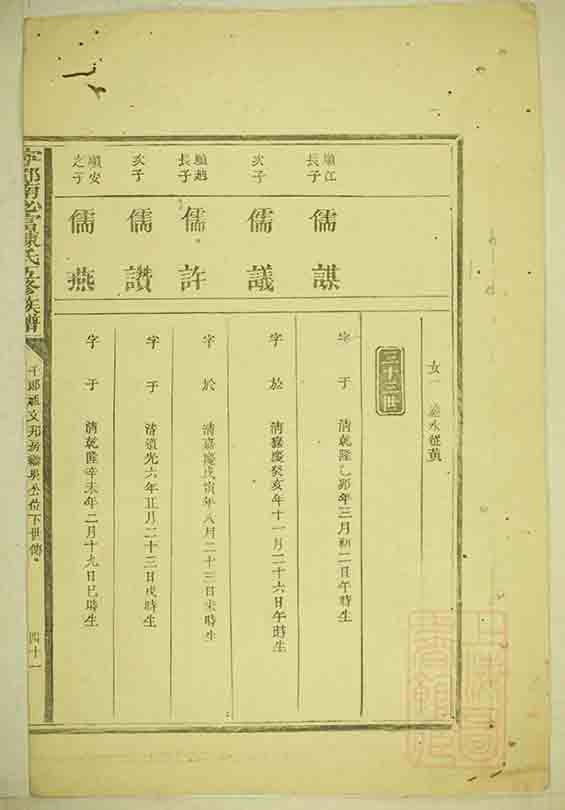 女一
三十三世
順江長子
儒謀
字于 清乾隆乙卯年三月初二日午時生
次子
儒議
字於 清嘉慶癸亥年十一月二十六日午時生
長子
儒許
字於 清嘉慶戊寅年八月二十三日未時生
次子
儒讚
字于 清道光六年正月二十三日戌時生
順安之子
儒燕
字于 清乾隆辛未年二月十九日巳時生
氏五修族譜
千郎祖文邦房 公位下世傳
四十一
上海圖書館藏